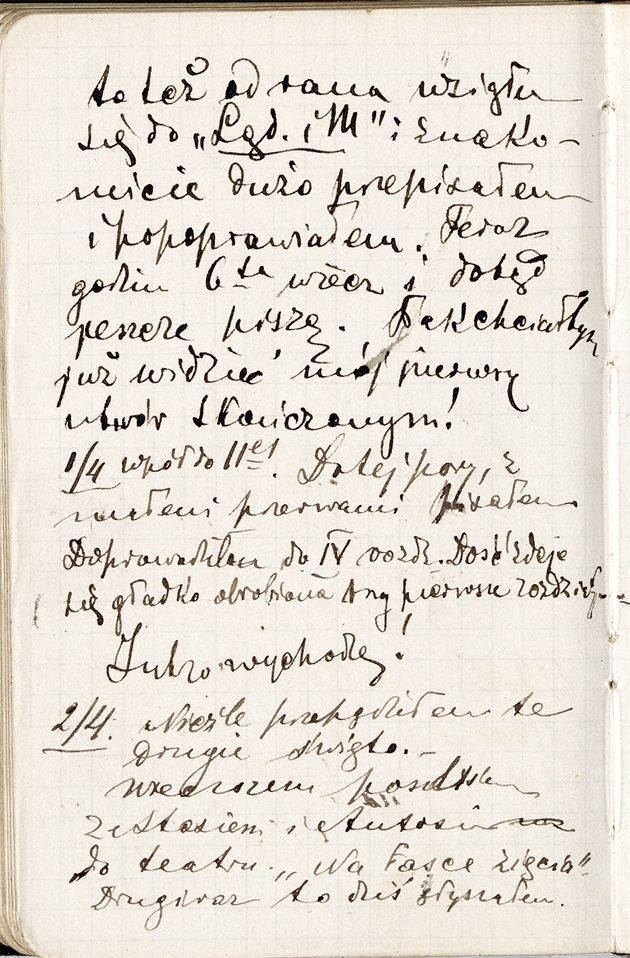 to też od rana wziąłem
się do „Lgd. i M” i znako-
micie dużo przepisałem
i popoprawiałem. Teraz
godzin 6ta wiecz i dotąd
jeszcze piszę. Tak chciałbym
już widzieć mój pierwszy
utwór skończonym!
1/4 wpół do 11ej. Do tej pory, z
małemi przerwami pisałem
Doprowadziłem do IV rozdz. Dość zdaje
się gładko obrobione trzy pierwsze rozdziały.
Jutro wychodzę!
2/4. Nieźle przepędziłem te
drugie święto.–
wieczorem poszedłem
ze Stasiem i Antosiem
do teatru. „Na Łasce Zięcia”.
Drugi raz to dziś słyszałem.